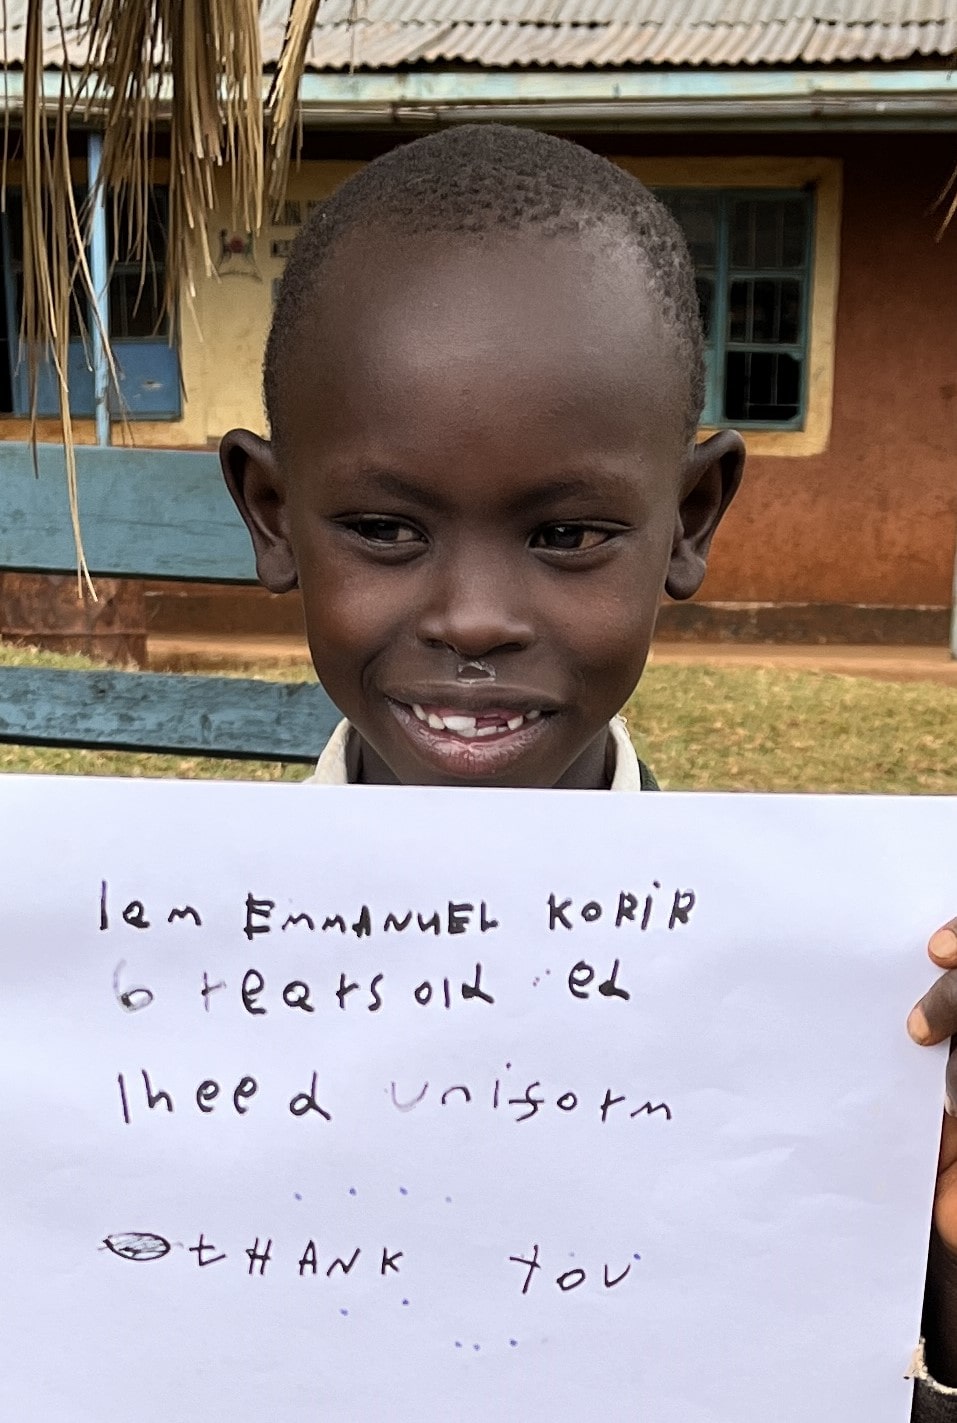 I am EMMANUEL KORIR
6 years old ed
I need uniform
tHANK YOU